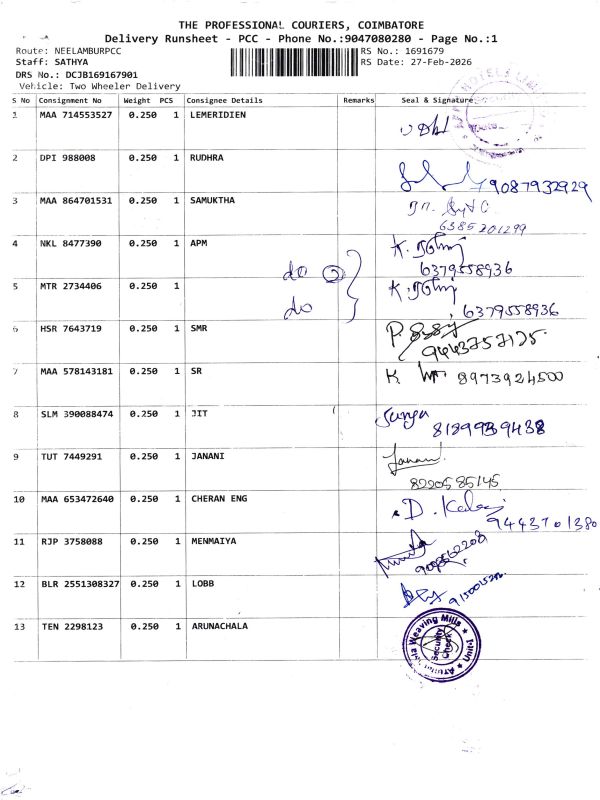 THE PROFESSIONAL COURIERS, COIMBATORE
Delivery Runsheet - PCC - Phone No.:9047080280 - Page No.:1
Route: NEELAMBURPCC RS No.: 1691679
Staff: SATHYA RS Date: 27-Feb-2026
DRS No.: DCJB169167901
Vehicle: Two Wheeler Delivery
S No Consignment No Weight PCS Consignee Details Remarks Seal & Signature
1 MAA 714553527 0.250 1 LEMERIDIEN
2 DPI 988008 0.250 1 RUDHRA
9087932929
3 MAA 864701531 0.250 1 SAMUKTHA
6385201299
4 NKL 8477390 0.250 1 APM
do 6379558936
5 MTR 2734406 0.250 1
do 6379558936
6 HSR 7643719 0.250 1 SMR
9443757175
7 MAA 578143181 0.250 1 SR K 8973924500
8 SLM 390088474 0.250 1 JIT Surya
9 TUT 7449291 0.250 1 JANANI Janani
8220585145
10 MAA 653472640 0.250 1 CHERAN ENG
9443701380
11 RJP 3758088 0.250 1 MENMAIYA
12 BLR 2551308327 0.250 1 LOBB
13 TEN 2298123 0.250 1 ARUNACHALA
Weaving Mills
Security Check
Unit-I